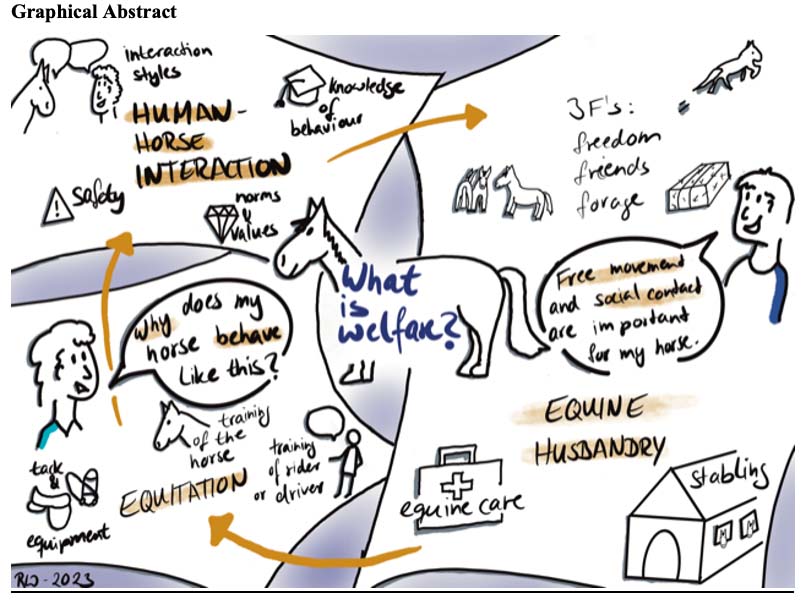 Graphical Abstract
interaction
styles
HUMAN-
HORSE
INTERACTION
knowledge
of
behaviour
safety
norms
&
values
3F's:
freedom
friends
forage
What
is
welfare?
Free movement
and social contact
are important
for my horse.
Why does my
horse behave
like this?
training
of the
horse
training
of rider
or driver
tack
&
equipment
EQUITATION
EQUINE
HUSBANDRY
equine care
stabling
RLD-2023